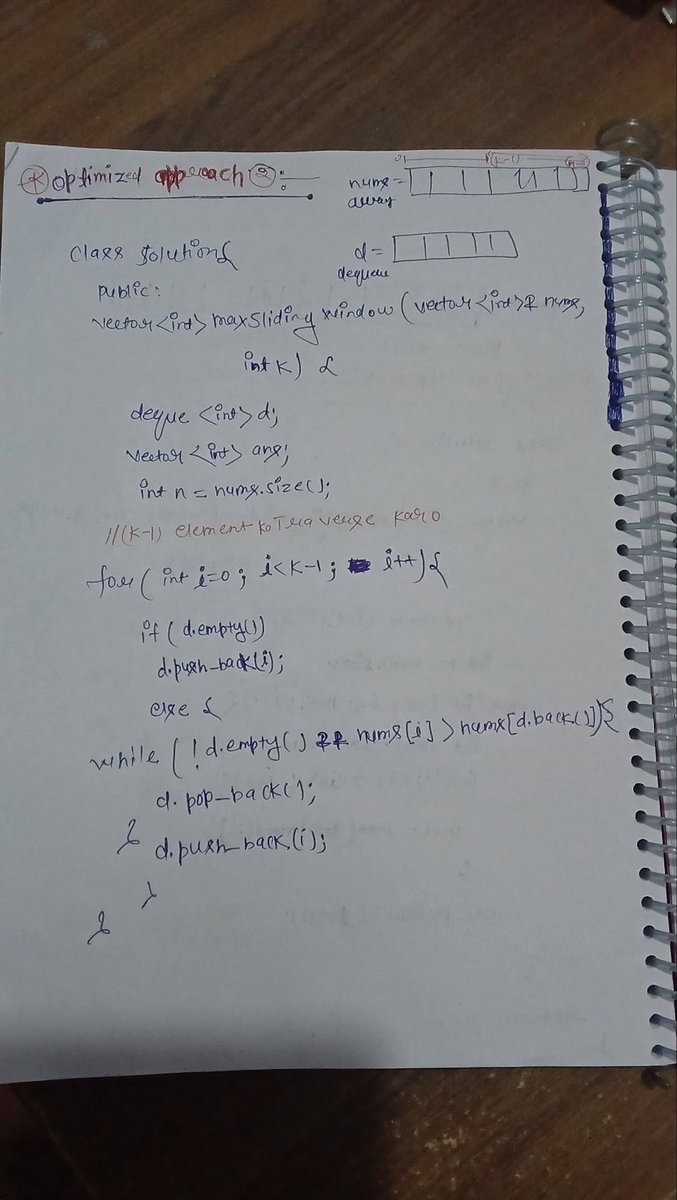 * Optimized approach ② :-
0 (k-1) (n-1)
nums =
array
d =
deque
class Solution{
public:
vector<int> maxSliding window (vector<int>& nums,
int k) {
deque <int> d;
vector <int> ans;
int n = nums.size();
//(k-1) element ko Traverse karo
for( int i=0 ; i<k-1 ; i++){
if ( d.empty())
d.push-back(i);
else {
while ( ! d.empty() && nums[i] > nums[d.back()]){
d. pop-back();
} d.push-back(i);
}
}